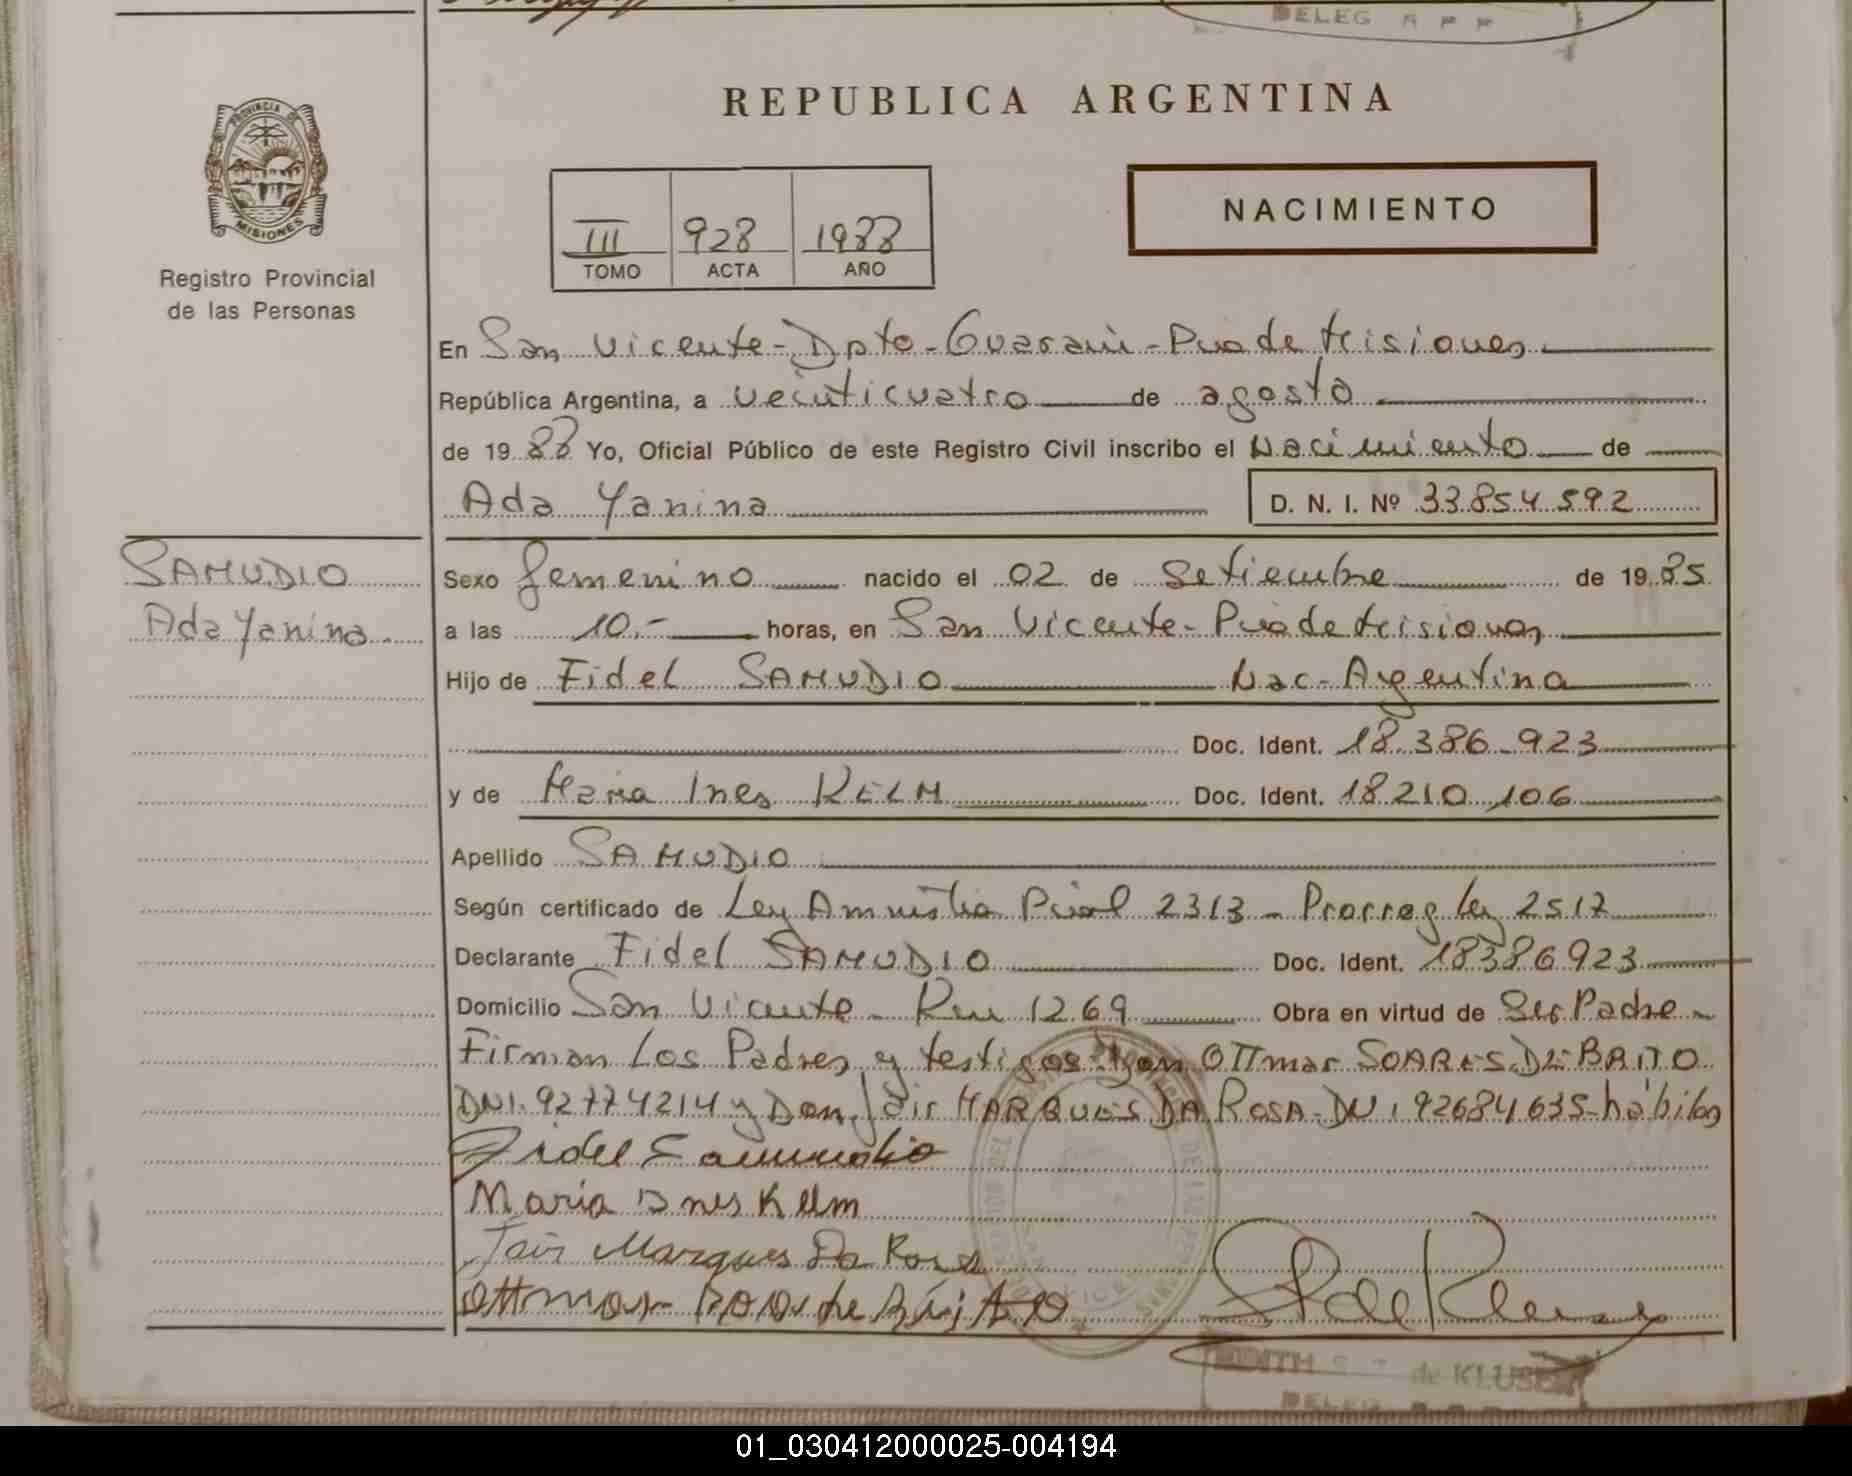 DELEG
REPUBLICA ARGENTINA
PROVINCIA DE
MISIONES
Registro Provincial
de las Personas
III 928 1988
TOMO ACTA AÑO
NACIMIENTO
En San Vicente - Dpto - Guarani - Pcia de Misiones
República Argentina, a veinticuatro de agosto
de 19 88 Yo, Oficial Público de este Registro Civil inscribo el Nacimiento de
Ada Yanina D. N. I. Nº 33854592
SAMUDIO
Ada Yanina
Sexo femenino nacido el 02 de Setiembre de 19 85
a las 10.- horas, en San Vicente - Pcia de Misiones
Hijo de Fidel SAMUDIO Nac - Argentina
Doc. Ident. 18.386.923
y de Maria Ines KELM Doc. Ident. 18210106
Apellido SAMUDIO
Según certificado de Ley Amnistia Pcial 2313 - Prorrog ley 2517
Declarante Fidel SAMUDIO Doc. Ident. 18386923
Domicilio San Vicente - Km 1269 Obra en virtud de Ser Padre -
Firman Los Padres y testigos Don OTTmar SOARES DE BRITO
DNI. 92774214 y Don Jair MARQUES DA ROSA - DNI 92684635 - hábiles
Fidel Samudio
Maria Ines Kelm
Jair Marques Da Rosa
ottmar
EDITH de KLUSEN
DELEG
01_030412000025-004194